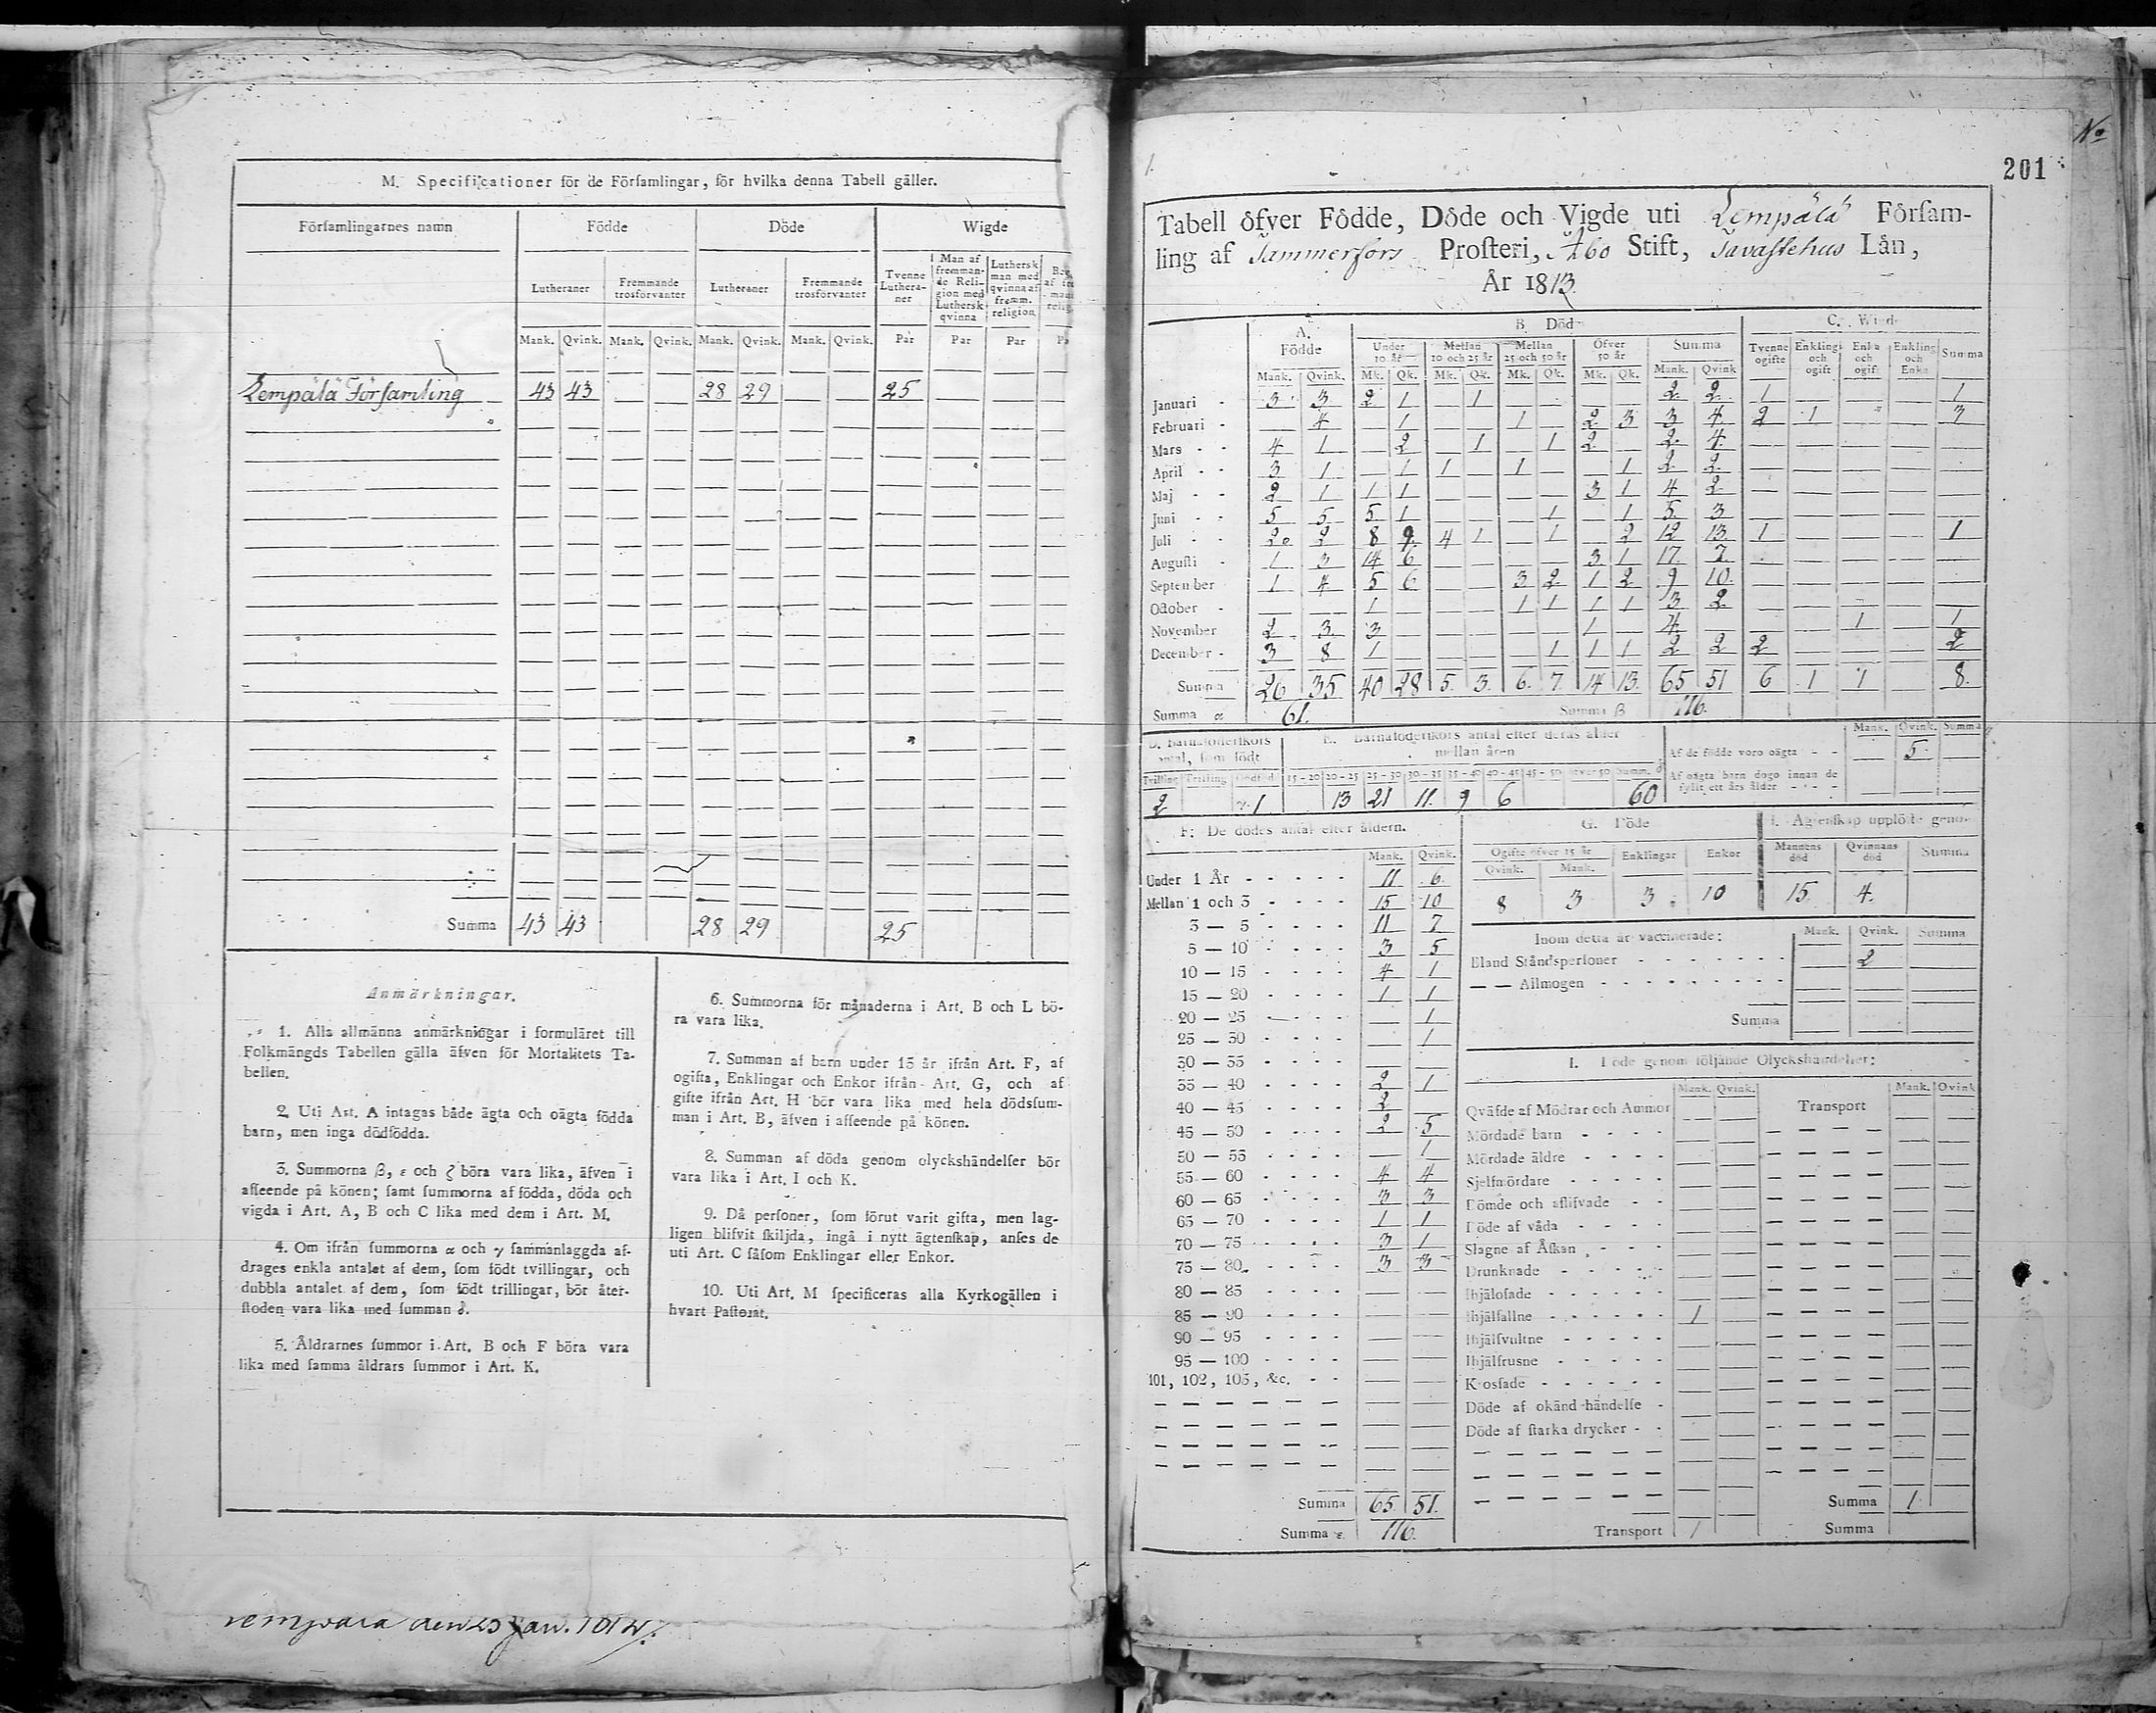 M. Specificationer för de Församlingar, för hvilka denna Tabell gäller.
Församlingarnes namn Födde Döde Wigde
Lutheraner Fremmande trosförvanter Lutheraner Fremmande trosförvanter Tvenne Luthera-ner Man af fremman-de Reli-gion med Luthersk qvinna Luthersk man med qvinna af fremm. religion
Mank. Qvink. Mank. Qvink. Mank. Qvink. Mank. Qvink. Par Par Par
Lempälä Församling 43 43 — — 28 29 — — 25
Summa 43 43 28 29 25
Anmärkningar.
1. Alla allmänna anmärkningar i formuläret till
Folkmängds Tabellen gälla äfven för Mortalitets Ta-
bellen.
2. Uti Art. A intagas både ägta och oägta födda
barn, men inga dödfödda.
3. Summorna β, ε och ζ böra vara lika, äfven i
afseende på könen; samt summorna af födda, döda och
vigda i Art. A, B och C lika med dem i Art. M.
4. Om ifrån summorna α och γ sammanlaggda af-
drages enkla antalet af dem, som födt tvillingar, och
dubbla antalet af dem, som födt trillingar, bör åter-
stoden vara lika med summan δ.
5. Åldrarnes summor i Art. B och F böra vara
lika med samma åldrars summor i Art. K.
6. Summorna för månaderna i Art. B och L bö-
ra vara lika.
7. Summan af barn under 15 år ifrån Art. F, af
ogifta, Enklingar och Enkor ifrån Art. G, och af
gifte ifrån Art. H bör vara lika med hela dödssum-
man i Art. B, äfven i afseende på könen.
8. Summan af döda genom olyckshändelser bör
vara lika i Art. I och K.
9. Då personer, som förut varit gifta, men lag-
ligen blifvit skiljda, ingå i nytt ägtenskap, anses de
uti Art. C såsom Enklingar eller Enkor.
10. Uti Art. M specificeras alla Kyrkogällen i
hvart Pastorat.
Jan. 1814
No
201
Tabell öfver Födde, Döde och Vigde uti Lempälä Försam-
ling af Tammerfors Prosteri, Åbo Stift, Tavastehus Län,
År 1813.
A. Födde B. Döde C. Wigde
Under 10 år Mellan 10 och 25 år Mellan 25 och 50 år Öfver 50 år Summa Tvenne ogifte Enkling och ogift Enka och ogift Enkling och Enka Summa
Mank. Qvink. Mk. Qk. Mk. Qk. Mk. Qk. Mk. Qk. Mank. Qvink
Januari 3 3 2 1 — 1 — — — — 2 2 1 — — — 1
Februari — 4 — 1 — — 1 — 2 3 3 4 2 1 — — 3
Mars 4 1 — 2 — 1 — 1 2 — 2 4 — — — — —
April 3 1 — 1 1 — 1 — — 1 2 2 — — — — —
Maj 2 1 1 1 — — — — 3 1 4 2 — — — — —
Juni 5 5 5 1 — — — 1 — 1 5 3 — — — — —
Juli 2 2 8 9 4 1 — 1 — 2 12 13 1 — — — 1
Augusti 1 3 14 6 — — — — 3 1 17 7 — — — — —
September 1 4 5 6 — — 3 2 1 2 9 10 — — — — —
October — — 1 — — — 1 1 1 1 3 2 — — — — —
November 2 3 3 — — — — — 1 — 4 — — — 1 — 1
December 3 8 1 — — — — 1 1 1 2 2 2 — — — 2
Summa 26 35 40 28 5 3 6 7 14 13 65 51 6 1 1 8
Summa α 61. Summa β 116.
D. Barnaföderskors antal, som födt
Tvilling Trilling Dödfödd
2 1
E. Barnaföderskors antal efter deras ålder mellan åren
15-20 20-25 25-30 30-35 35-40 40-45 45-50 öfver 50 Summ. δ
13 21 11 9 6 60
Mank. Qvink. Summa
Af de födde voro oägta — 5 —
Af oägta barn dogo innan de
fyllt ett års ålder — — —
F. De dödes antal efter åldern.
Mank. Qvink.
Under 1 År 11 6
Mellan 1 och 3 15 10
3 — 5 11 7
5 — 10 3 5
10 — 15 4 1
15 — 20 1 1
20 — 25 — 1
25 — 30 — 1
30 — 35 — —
35 — 40 2 1
40 — 45 2 —
45 — 50 2 5
50 — 55 — 1
55 — 60 4 4
60 — 65 3 3
65 — 70 1 1
70 — 75 3 1
75 — 80 3 3
80 — 85 — —
85 — 90 — —
90 — 95 — —
95 — 100 — —
101, 102, 103, &c. — —
Summa 65 51.
Summa ε. 116.
G. Döde
Ogifte öfver 15 år Enklingar Enkor
Qvink. Mank.
8 3 3 10
Ägtenskap upplöste genom
Mannens död Qvinnans död Summa
15 4
Inom detta år vaccinerade: Mank. Qvink. Summa
Bland Ståndspersoner — 2 —
— — Allmogen — — —
Summa
I. Döde genom följande Olyckshändelser:
Mank. Qvink. Mank. Qvink
Qväfde af Mödrar och Ammor — — Transport
Mördade barn — —
Mördade äldre — —
Sjelfmördare — —
Dömde och aflifvade — —
Döde af våda — —
Slagne af Åskan — —
Drunknade — —
Ihjälosade — —
Ihjälfallne 1 —
Ihjälsvultne — —
Ihjälfrusne — —
Krossade — —
Döde af okänd händelse — —
Döde af starka drycker — —
Summa 1
Transport 1 Summa